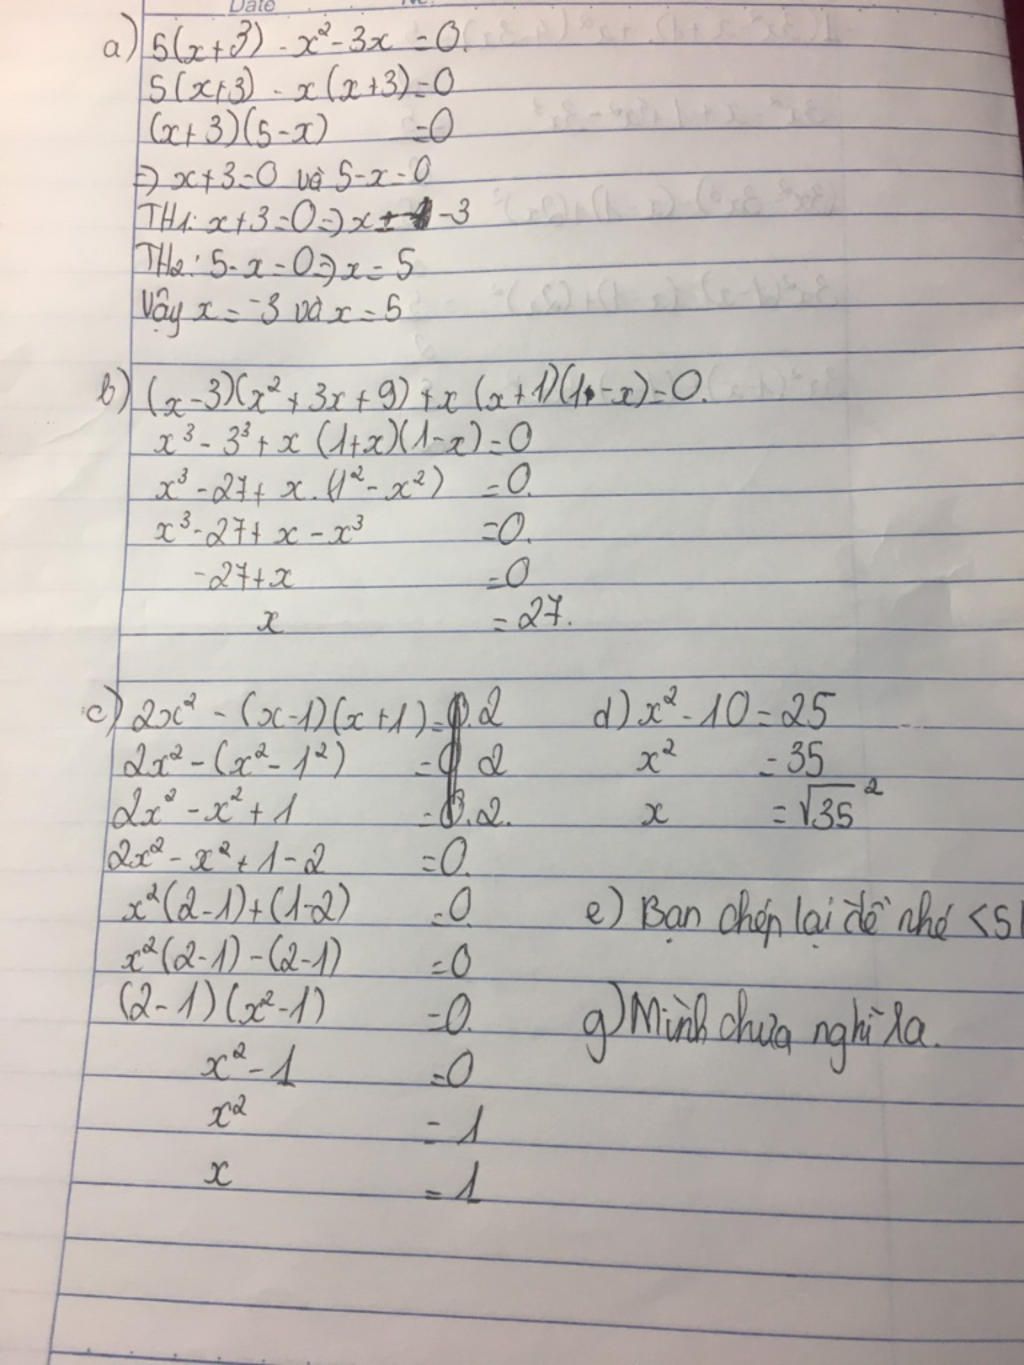 Date
a) 5(x+3) - x² - 3x = 0.
5(x+3) - x(x+3) = 0
(x+3)(5-x) = 0
=> x+3=0 và 5-x=0
TH1: x+3=0 => x = -3
TH2: 5-x=0 => x = 5
Vậy x = -3 và x = 5
b) (x-3)(x² + 3x + 9) + x (x+1)(1-x) = 0.
x³ - 3³ + x (1+x)(1-x) = 0
x³ - 27 + x.(1² - x²) = 0.
x³ - 27 + x - x³ = 0.
-27 + x = 0
x = 27.
c) 2x² - (x-1)(x+1) = 2
2x² - (x² - 1²) = 2
2x² - x² + 1 = 2.
2x² - x² + 1 - 2 = 0.
x²(2-1) + (1-2) = 0
x²(2-1) - (2-1) = 0
(2-1)(x²-1) = 0.
x² - 1 = 0
x² = 1
x = 1
d) x² - 10 = 25
x² = 35
x = √35²
e) Bạn chép lại đề nhé <S
g) Mình chưa nghĩ ra.